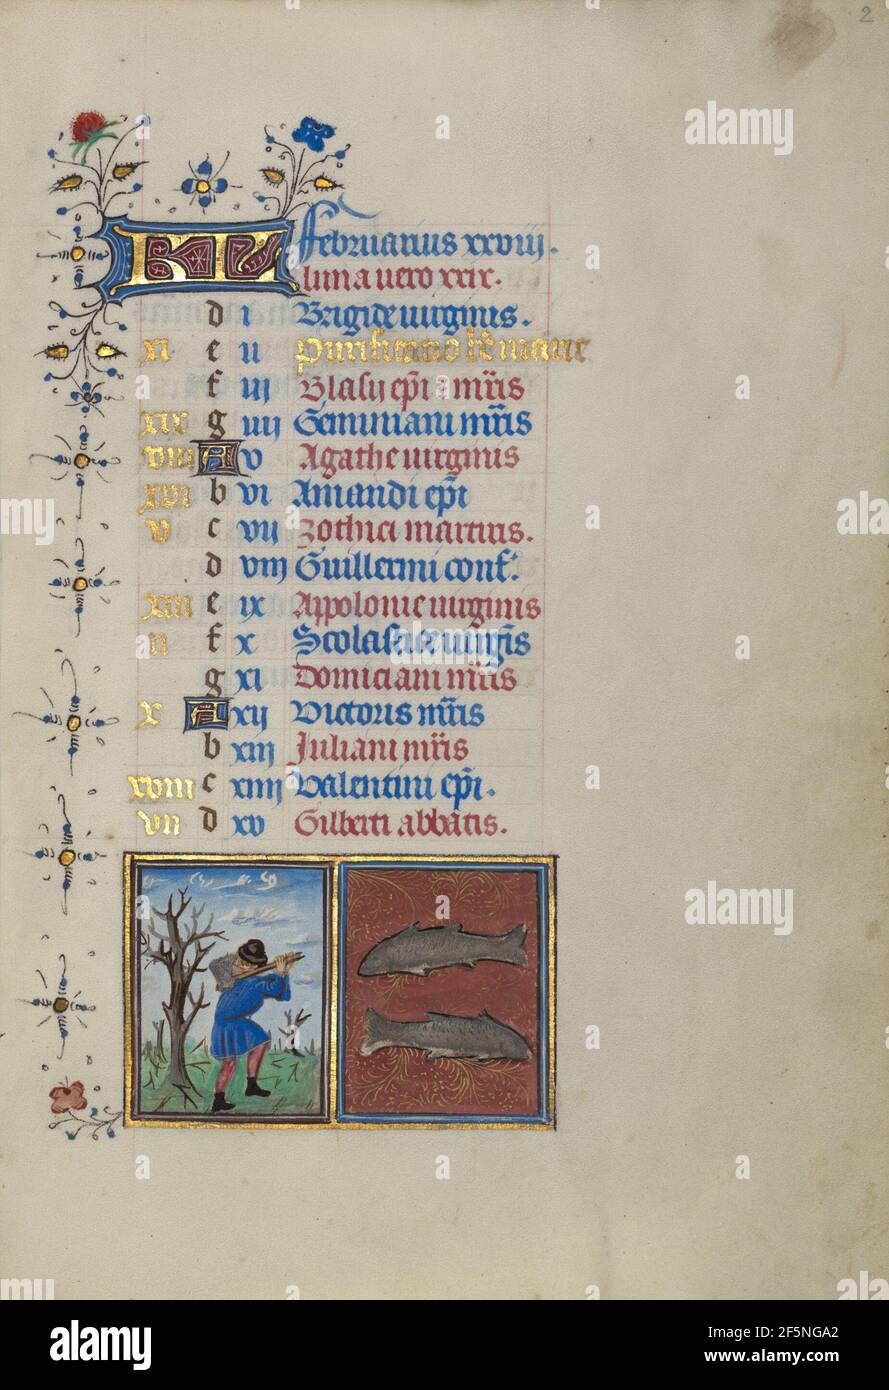 2
KL februarius xxviij.
luna vero xxix.
d i Brigide virginis.
xi e ii Purificatio bte marie
f iij Blasij epi a mris
xix g iiij Geminiani mris
viii A v Agathe virginis
xvi b vi Amandi epi
v c vii Zothici martiris.
d viij Guillermi conf.
xiii e ix Appolonie virginis
ii f x Scolastice virgis
g xi Domiciani mris
x A xij Victoris mris
b xiij Juliani mris
xviii c xiiij Valentini epi.
vii d xv Gilberti abbatis.
alamy
Image ID: 2F5NGA2
www.alamy.com